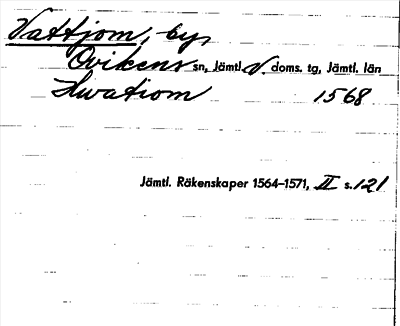 Vattjom, by,
Ovikens sn, Jämtl. V. doms. tg, Jämtl. län
Hwatiom 1568
Jämtl. Räkenskaper 1564–1571, II s. 121